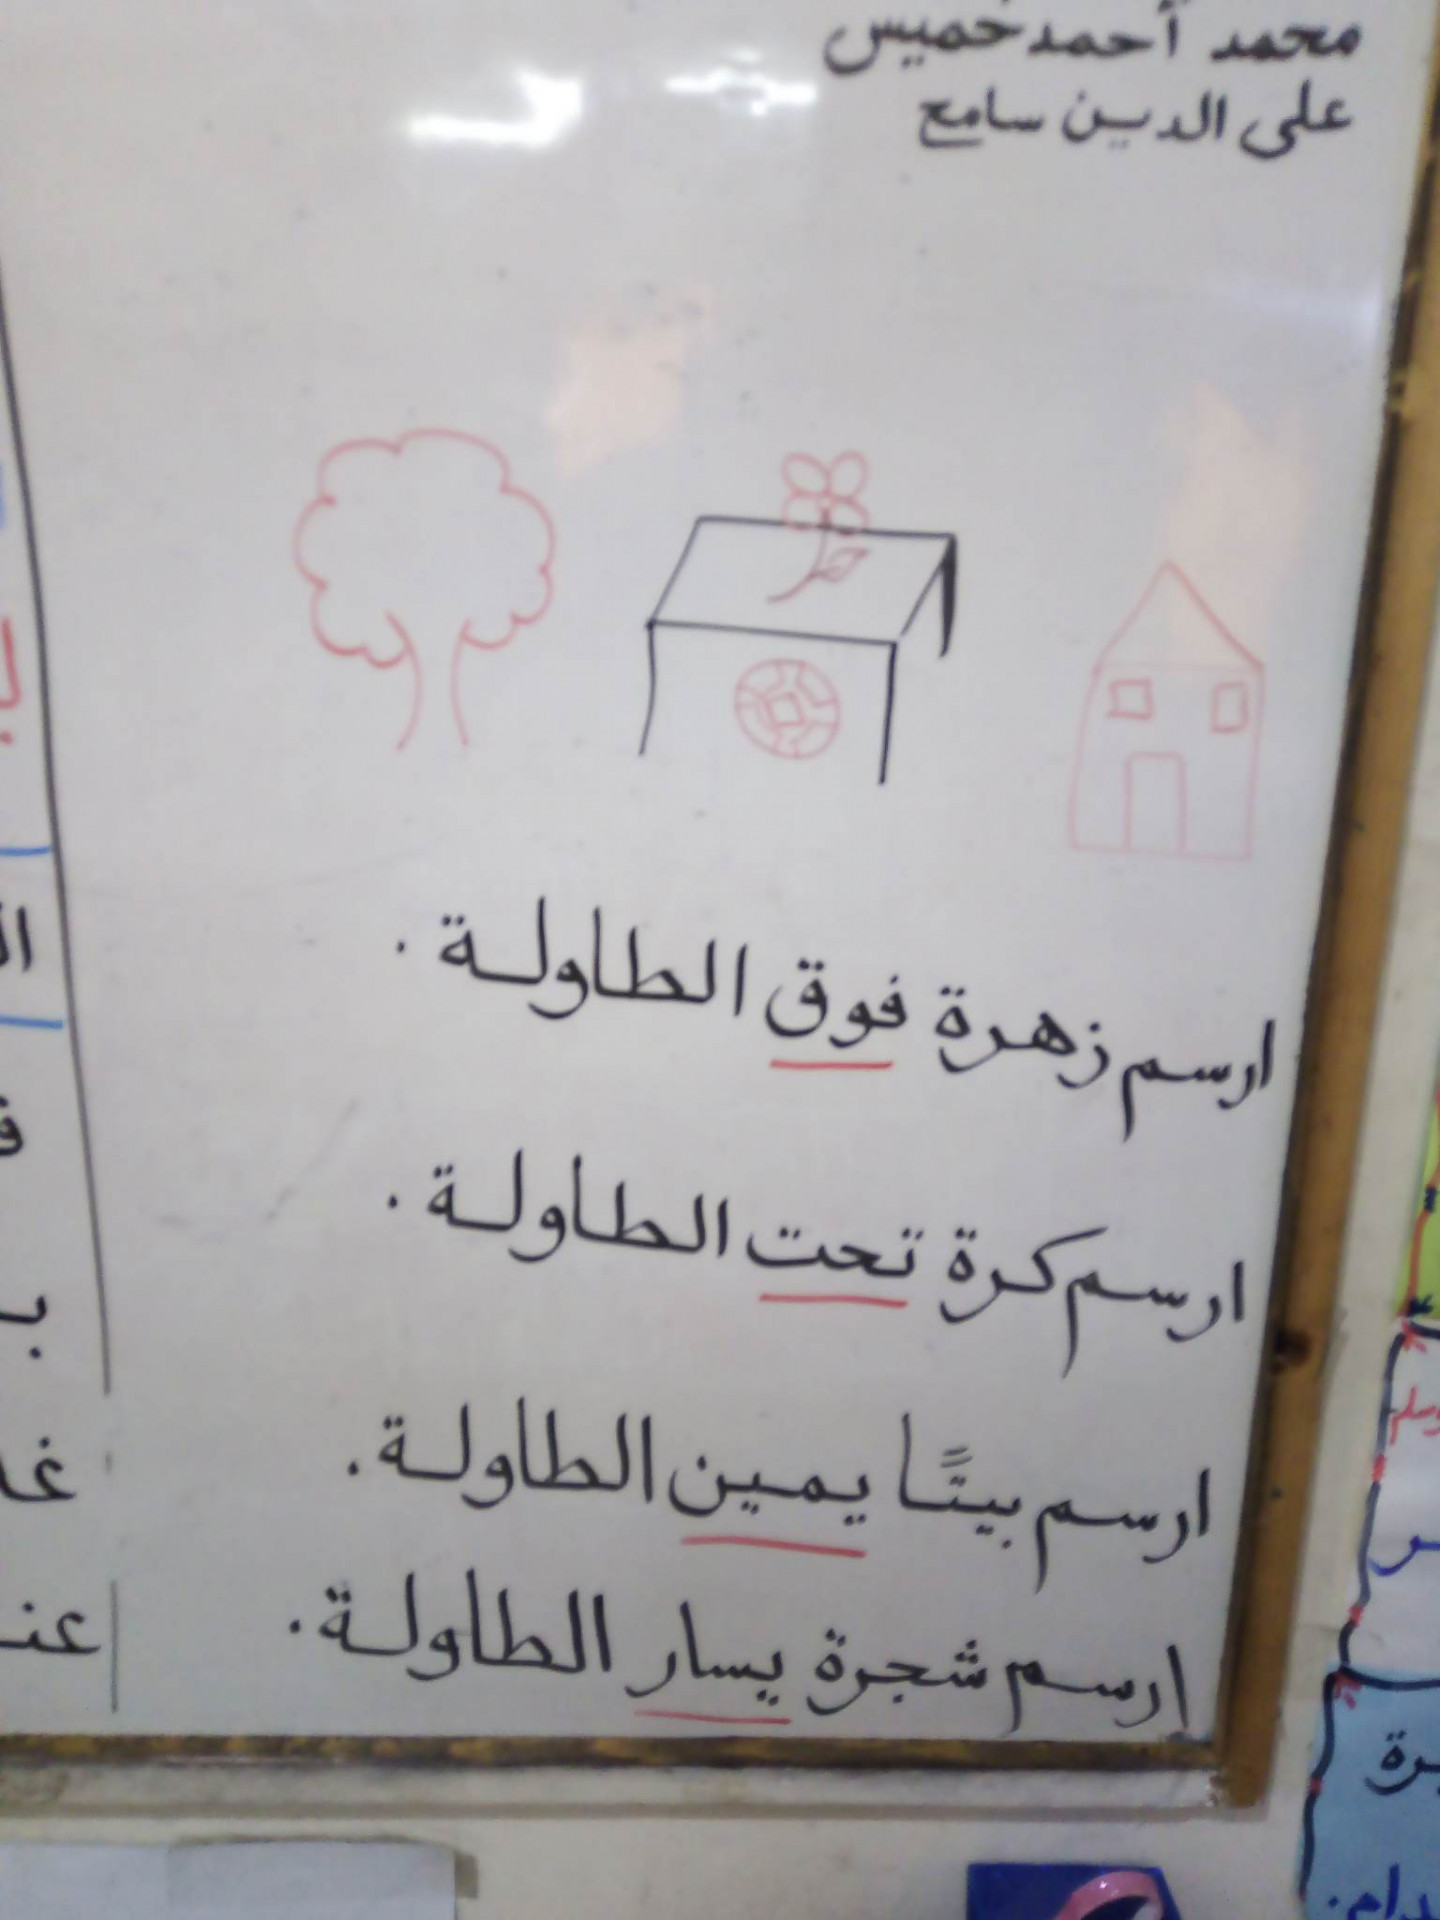 محمد أحمد خميس
على الدين سامح
ارسم زهرة فوق الطاولة.
ارسم كرة تحت الطاولة.
ارسم بيتًا يمين الطاولة.
ارسم شجرة يسار الطاولة.